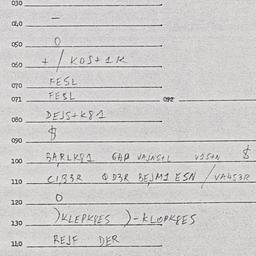 030
040 —
050 0
060 + / KOS+1K
070 FESL
071 FESL 072
080 DEJS+K81
090 $
100 BARLK81 GAP VAJNS+L VISAN $
110 CI,B3R 0 D3R BEJM1 ESN / VA4S3R
120 0
130 )KLEPKPES )-KLOPKPES
140 REJF DER